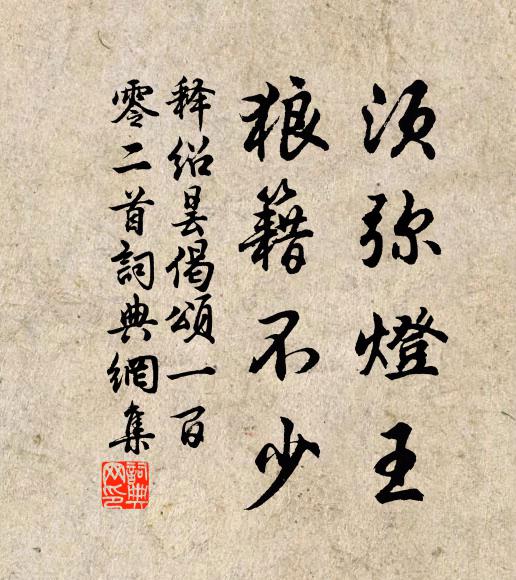 须弥燈王
狼籍不少
释绍昙偈颂一百
零二首詞典網集
詞典
网印